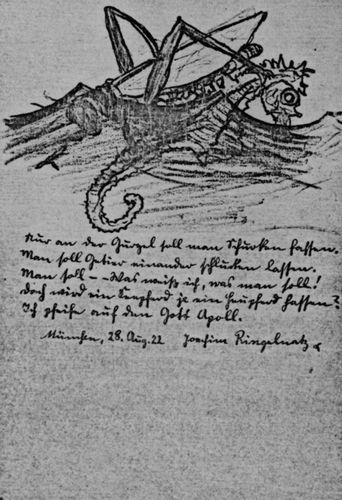 Nur an der Gurgel soll man Schurken fassen.
Man soll Getier einander schlucken lassen.
Man soll – Was weiß ich, was man soll!
Doch wird ein Seepferd je ein Heupferd hassen?
Ich pfeife auf den Gott Apoll.
München, 28. Aug. 22 Joachim Ringelnatz